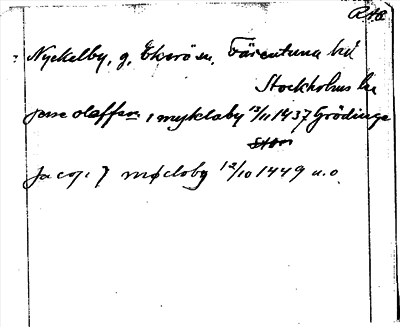 RAÖ
Nyckelby, g. Ekerö sn, Färentuna hd
Stockholms län
jasse olaffson i myklaby 13/11 1437 Grödinge
jacop i møcloby 12/10 1449 u.o.